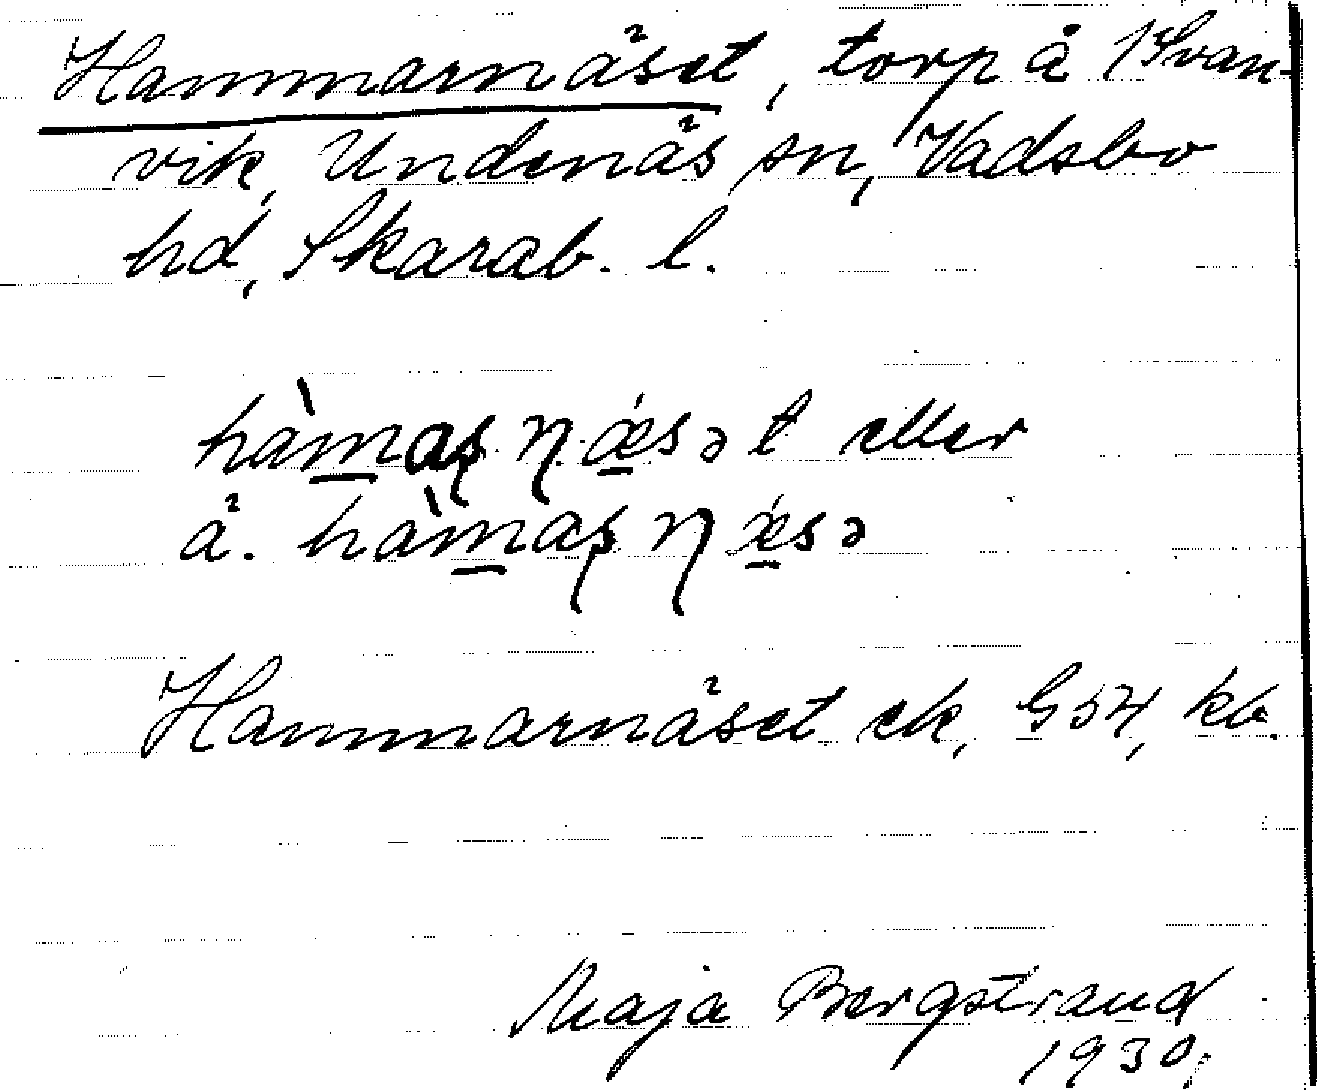 Hammarnäset, torp å 1 Svan-
vik, Undenäs sn, Vadsbo
hd, Skarab. l.
hàmaʂ ɳǽsət eller
ä. hàmaʂ ɳǽsə
Hammarnäset ek, G54, kb.
Maja Bergstrand
1930.